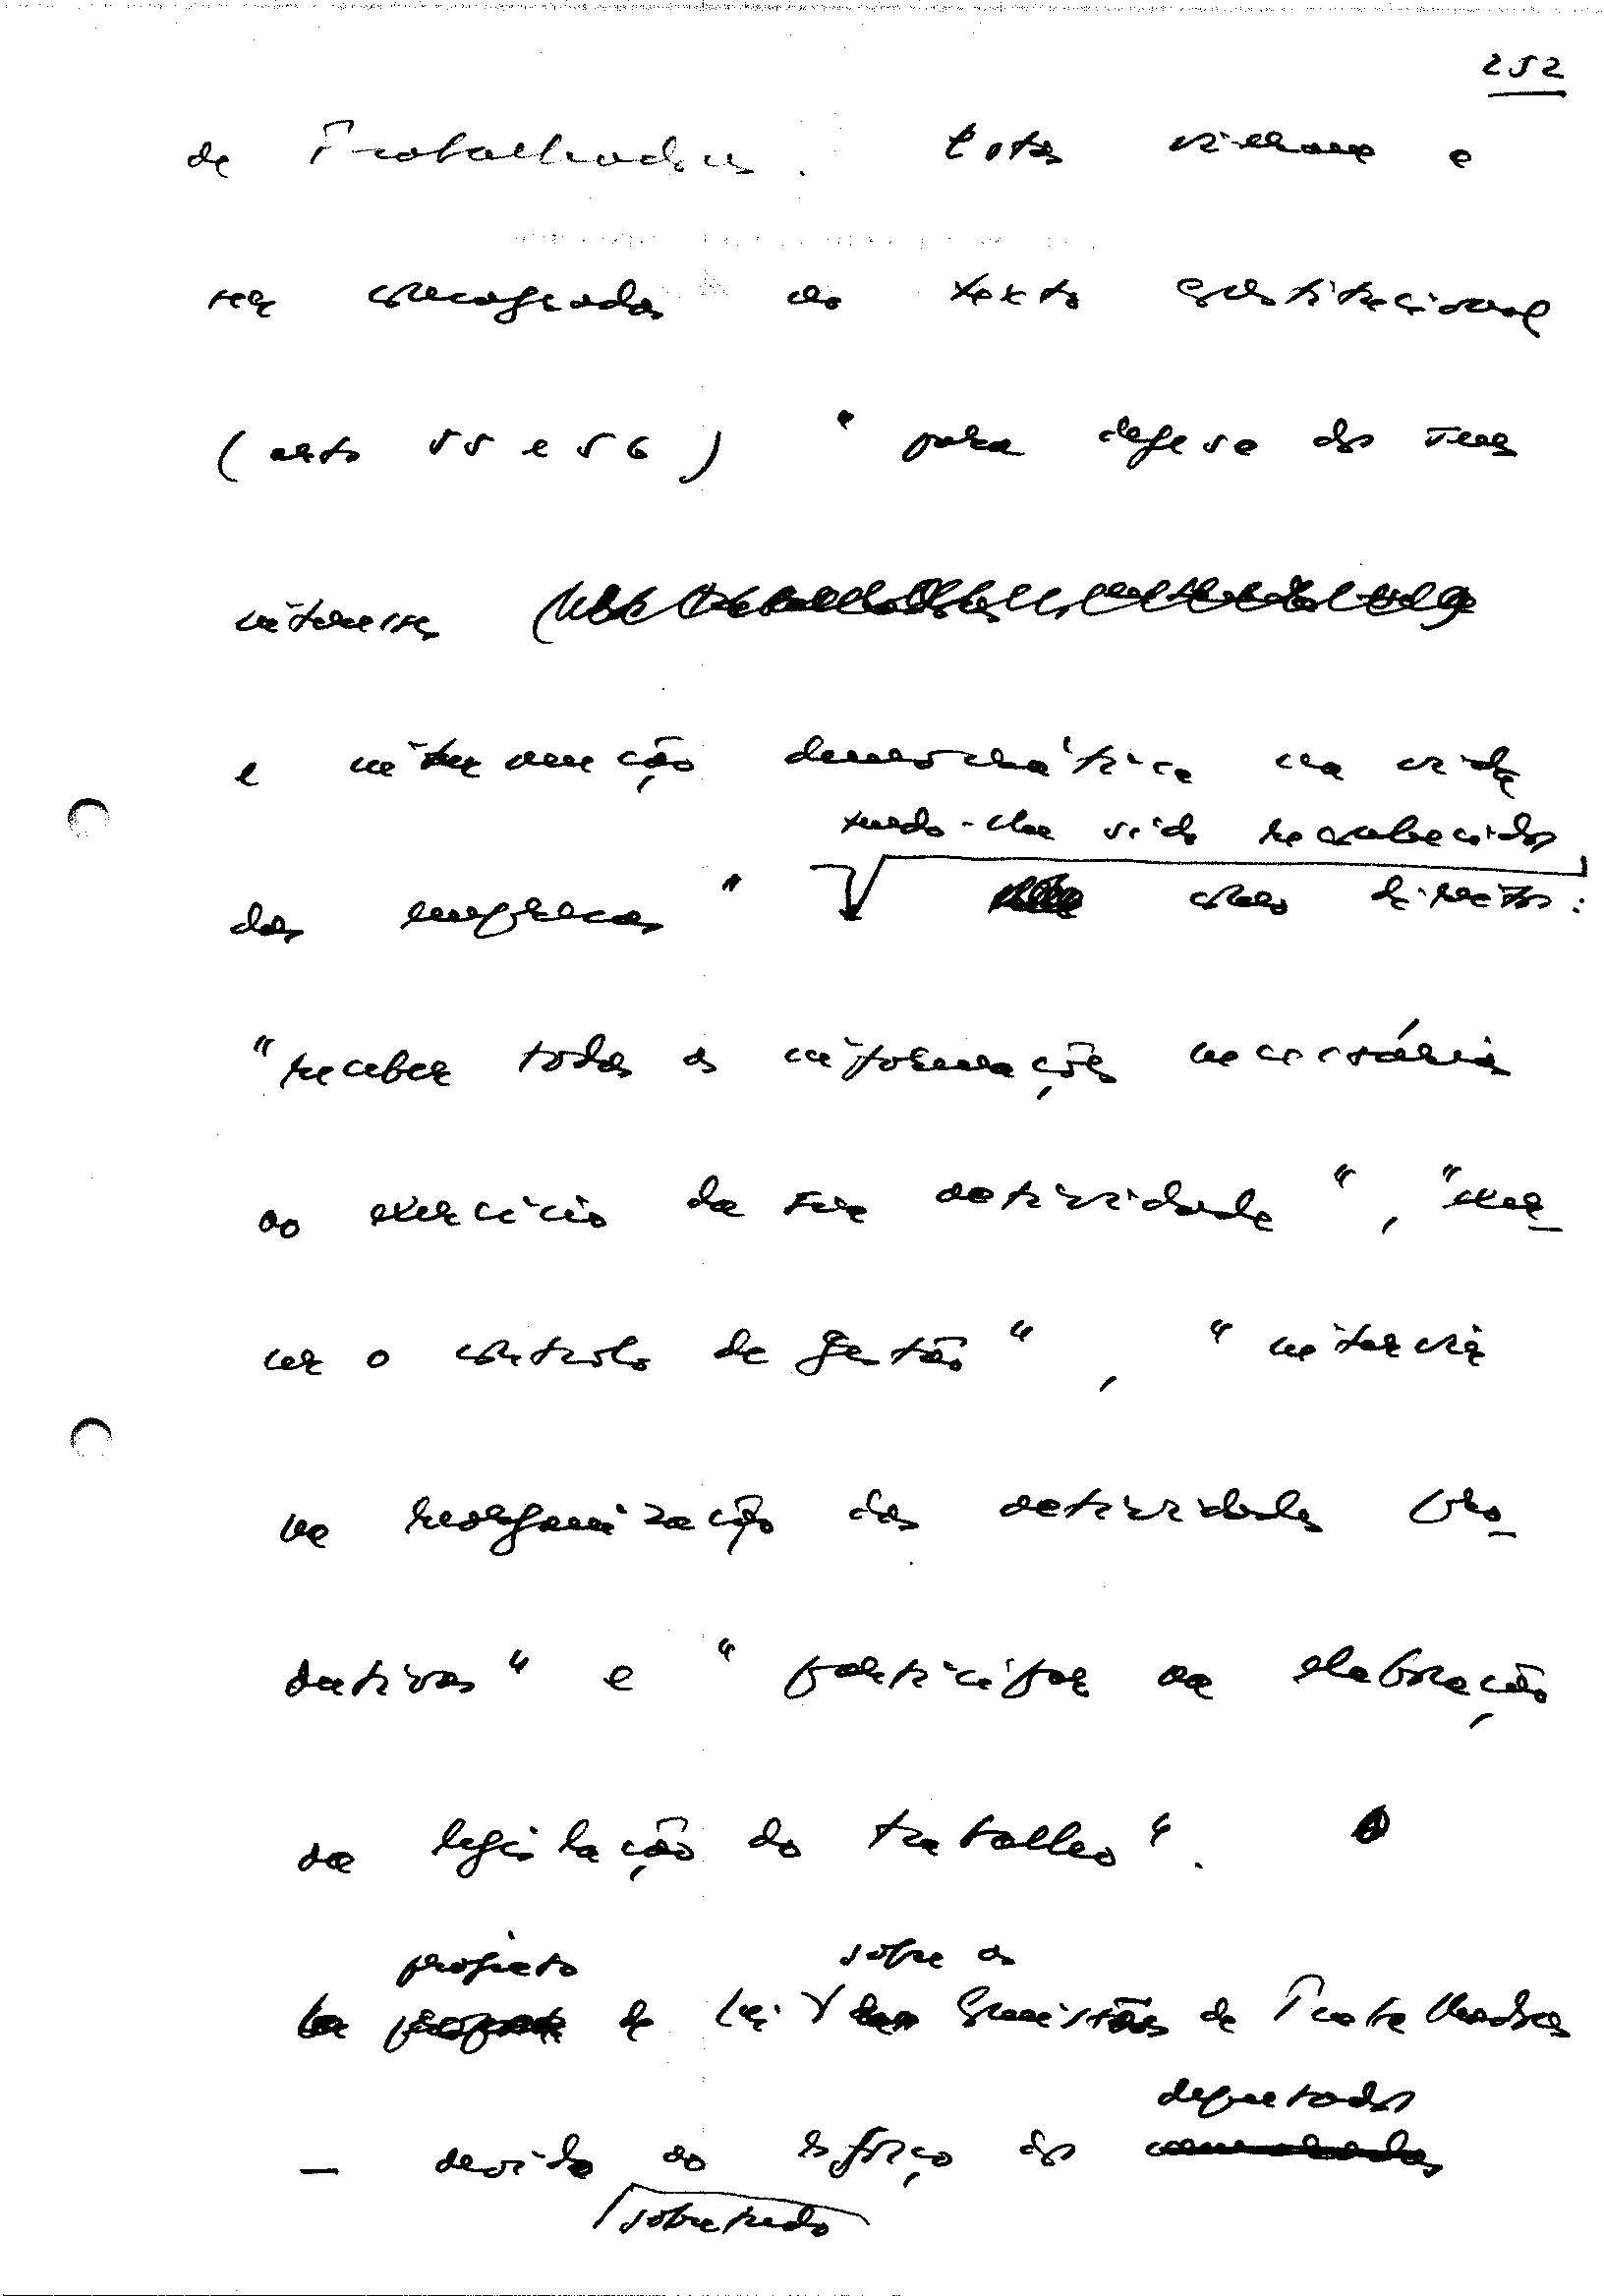 252
de Trabalhadores. Estas vinham a
ser consagradas no texto Constitucional
(arto 55 e 56) " para defesa dos seus
interesses
e intervenção democrática na vida
tendo-lhe sido reconhecidos
das empresas " como direitos:
"receber todas as informações necessárias
ao exercício da sua actividade", "exer-
cer o controlo de gestão", "intervir
na reorganização das actividades pro-
dutivas" e "participar na elaboração
da legislação do trabalho".
projecto sobre as
de lei Comissões de Trabalhadores
deputados
— devido ao esforço dos camaradas
sobretudo